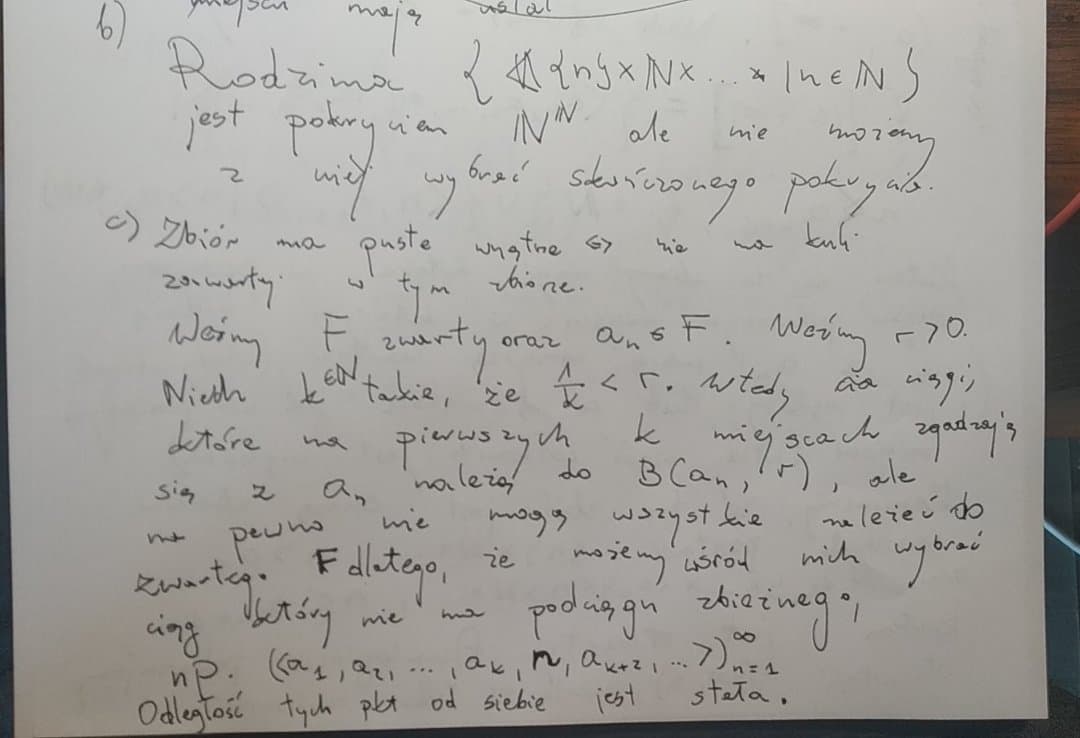 mają ustal
b)
Rodzina { {n}×ℕ×...× | n ∈ ℕ }
jest pokryciem ℕ^ℕ ale nie możemy
z niej wybrać skończonego pokrycia.
c) Zbiór ma puste wnętrze <=> nie ma kuli
zawartej w tym zbiorze.
Weźmy F zwarty oraz aₙ ∈ F. Weźmy r>0.
Niech k∈ℕ takie, że 1/k < r. Wtedy ciągi,
które na pierwszych k miejscach zgadzają
się z aₙ należą do B(aₙ, r), ale
na pewno nie mogą wszystkie należeć do
zwartego F dlatego, że możemy wśród nich wybrać
ciąg który nie ma podciągu zbieżnego,
np. (<a₁, a₂, ..., aₖ, n, aₖ₊₂, ...>)^∞_{n=1}
Odległość tych pkt od siebie jest stała.